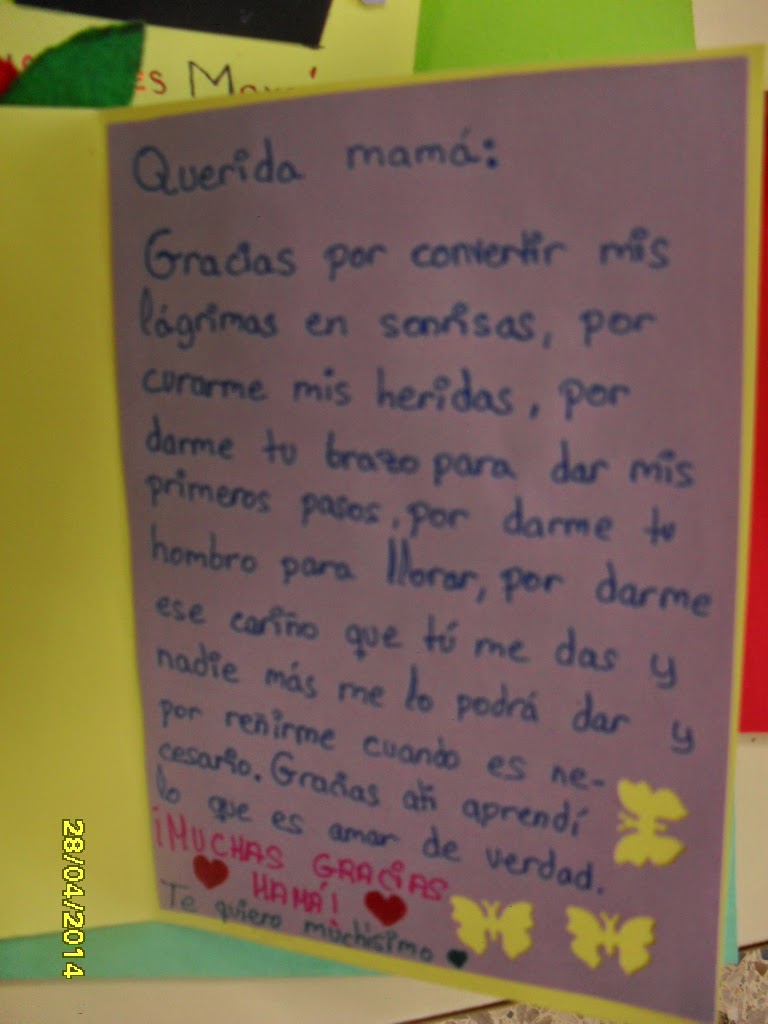 ES
Querida mamá:
Gracias por convertir mis
lágrimas en sonrisas, por
curarme mis heridas, por
darme tu brazo para dar mis
primeros pasos, por darme tu
hombro para llorar, por darme
ese cariño que tú me das y
nadie más me lo podrá dar y
por reñirme cuando es ne-
cesario. Gracias ati aprendí
lo que es amar de verdad.
¡MUCHAS GRACIAS
MAMÁ!
Te quiero muchísimo
28/04/2014